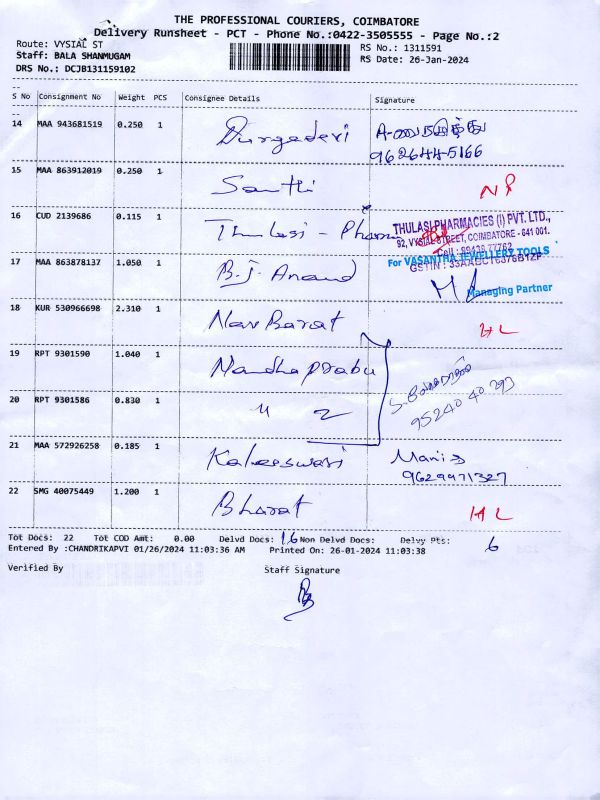 THE PROFESSIONAL COURIERS, COIMBATORE
Delivery Runsheet - PCT - Phone No.:0422-3505555 - Page No.:2
Route: VYSIAL ST
RS No.: 1311591
Staff: BALA SHANMUGAM
RS Date: 26-Jan-2024
DRS No.: DCJB131159102
S No Consignment No Weight PCS Consignee Details Signature
14 MAA 943681519 0.250 1 Durgadevi
9626445166
15 MAA 863912019 0.250 1 Santhi NP
16 CUD 2139686 0.115 1 Thulasi - Pharm
THULASI PHARMACIES (I) PVT. LTD.,
92, VYSIAL STREET, COIMBATORE - 641 001.
Cell : 99438 77762
17 MAA 863878137 1.050 1 B.J. Anand
For VASANTHA JEWELLERY TOOLS
Managing Partner
18 KUR 530966698 2.310 1 Nav Barat HL
19 RPT 9301590 1.040 1 Nandha prabu
20 RPT 9301586 0.830 1 " 2
95240 40 293
21 MAA 572926258 0.185 1 Kaleeswari
9629971327
22 SMG 40075449 1.200 1 Bharat HL
Tot Docs: 22 Tot COD Amt: 0.00 Delvd Docs: 16 Non Delvd Docs: Delvy Pts: 6
Entered By :CHANDRIKAPVI 01/26/2024 11:03:36 AM Printed On: 26-01-2024 11:03:38
Verified By Staff Signature